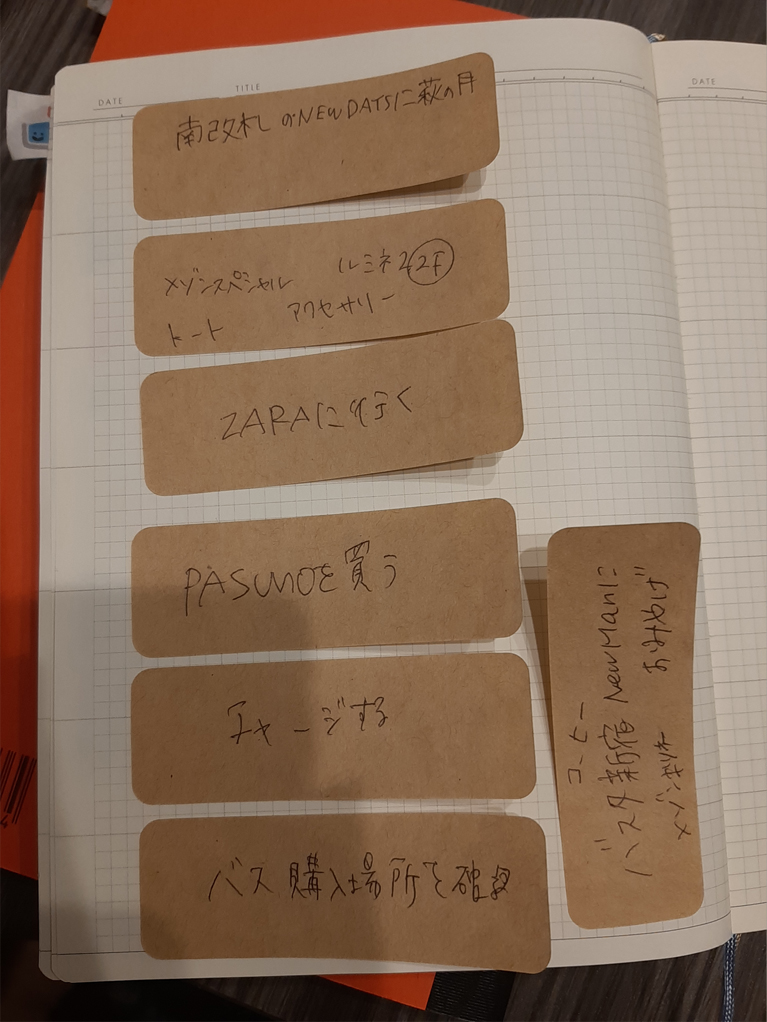 DATE TITLE
DATE
南改札のNEWDATSに萩の月
メゾンスペシャル ルミネ2 2F
トート アクセサリー
ZARAに行く
PASUMOを買う
チャージする
バス購入場所を確認
コーヒー
バスタ新宿 NewManに
おみやげ
4